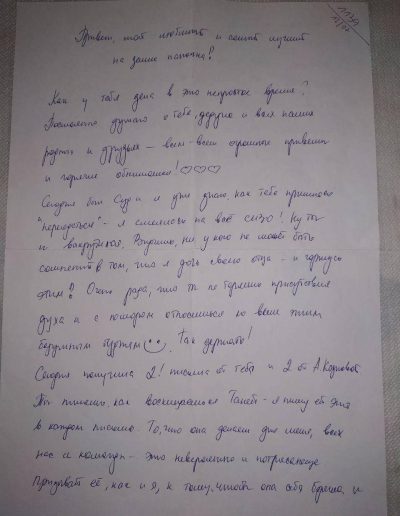 Привет, мой любимый и самый лучший
на земле папочка!
Как у тебя дела в это непростое время?
Постоянно думаю о тебе, дедушке и всех наших
родных и друзьях – всем-всем огромные приветы
и горячие обнимашки! ♡♡♡
Сегодня был суд и я уже знаю, как тебе пришлось
"переодеться" – я смеялась на всё СИЗО! Ну ты
и выкрутился. Впрочем, ни у кого не может быть
сомнений в том, что я дочь своего отца – и горжусь
этим! Очень рада, что ты не теряешь присутствия
духа и с юмором относишься ко всем этим
безумным 🙂. Так держать!
Сегодня получила 2! письма от тебя и 2 от А.
Ты пишешь, как восхищаешься Таней – я пишу ей это
в каждом письме. То, что она делает для меня, всех
нас и команды – это невероятно и потрясающе
ее, как и я, к тому, чтобы она себя берегла и